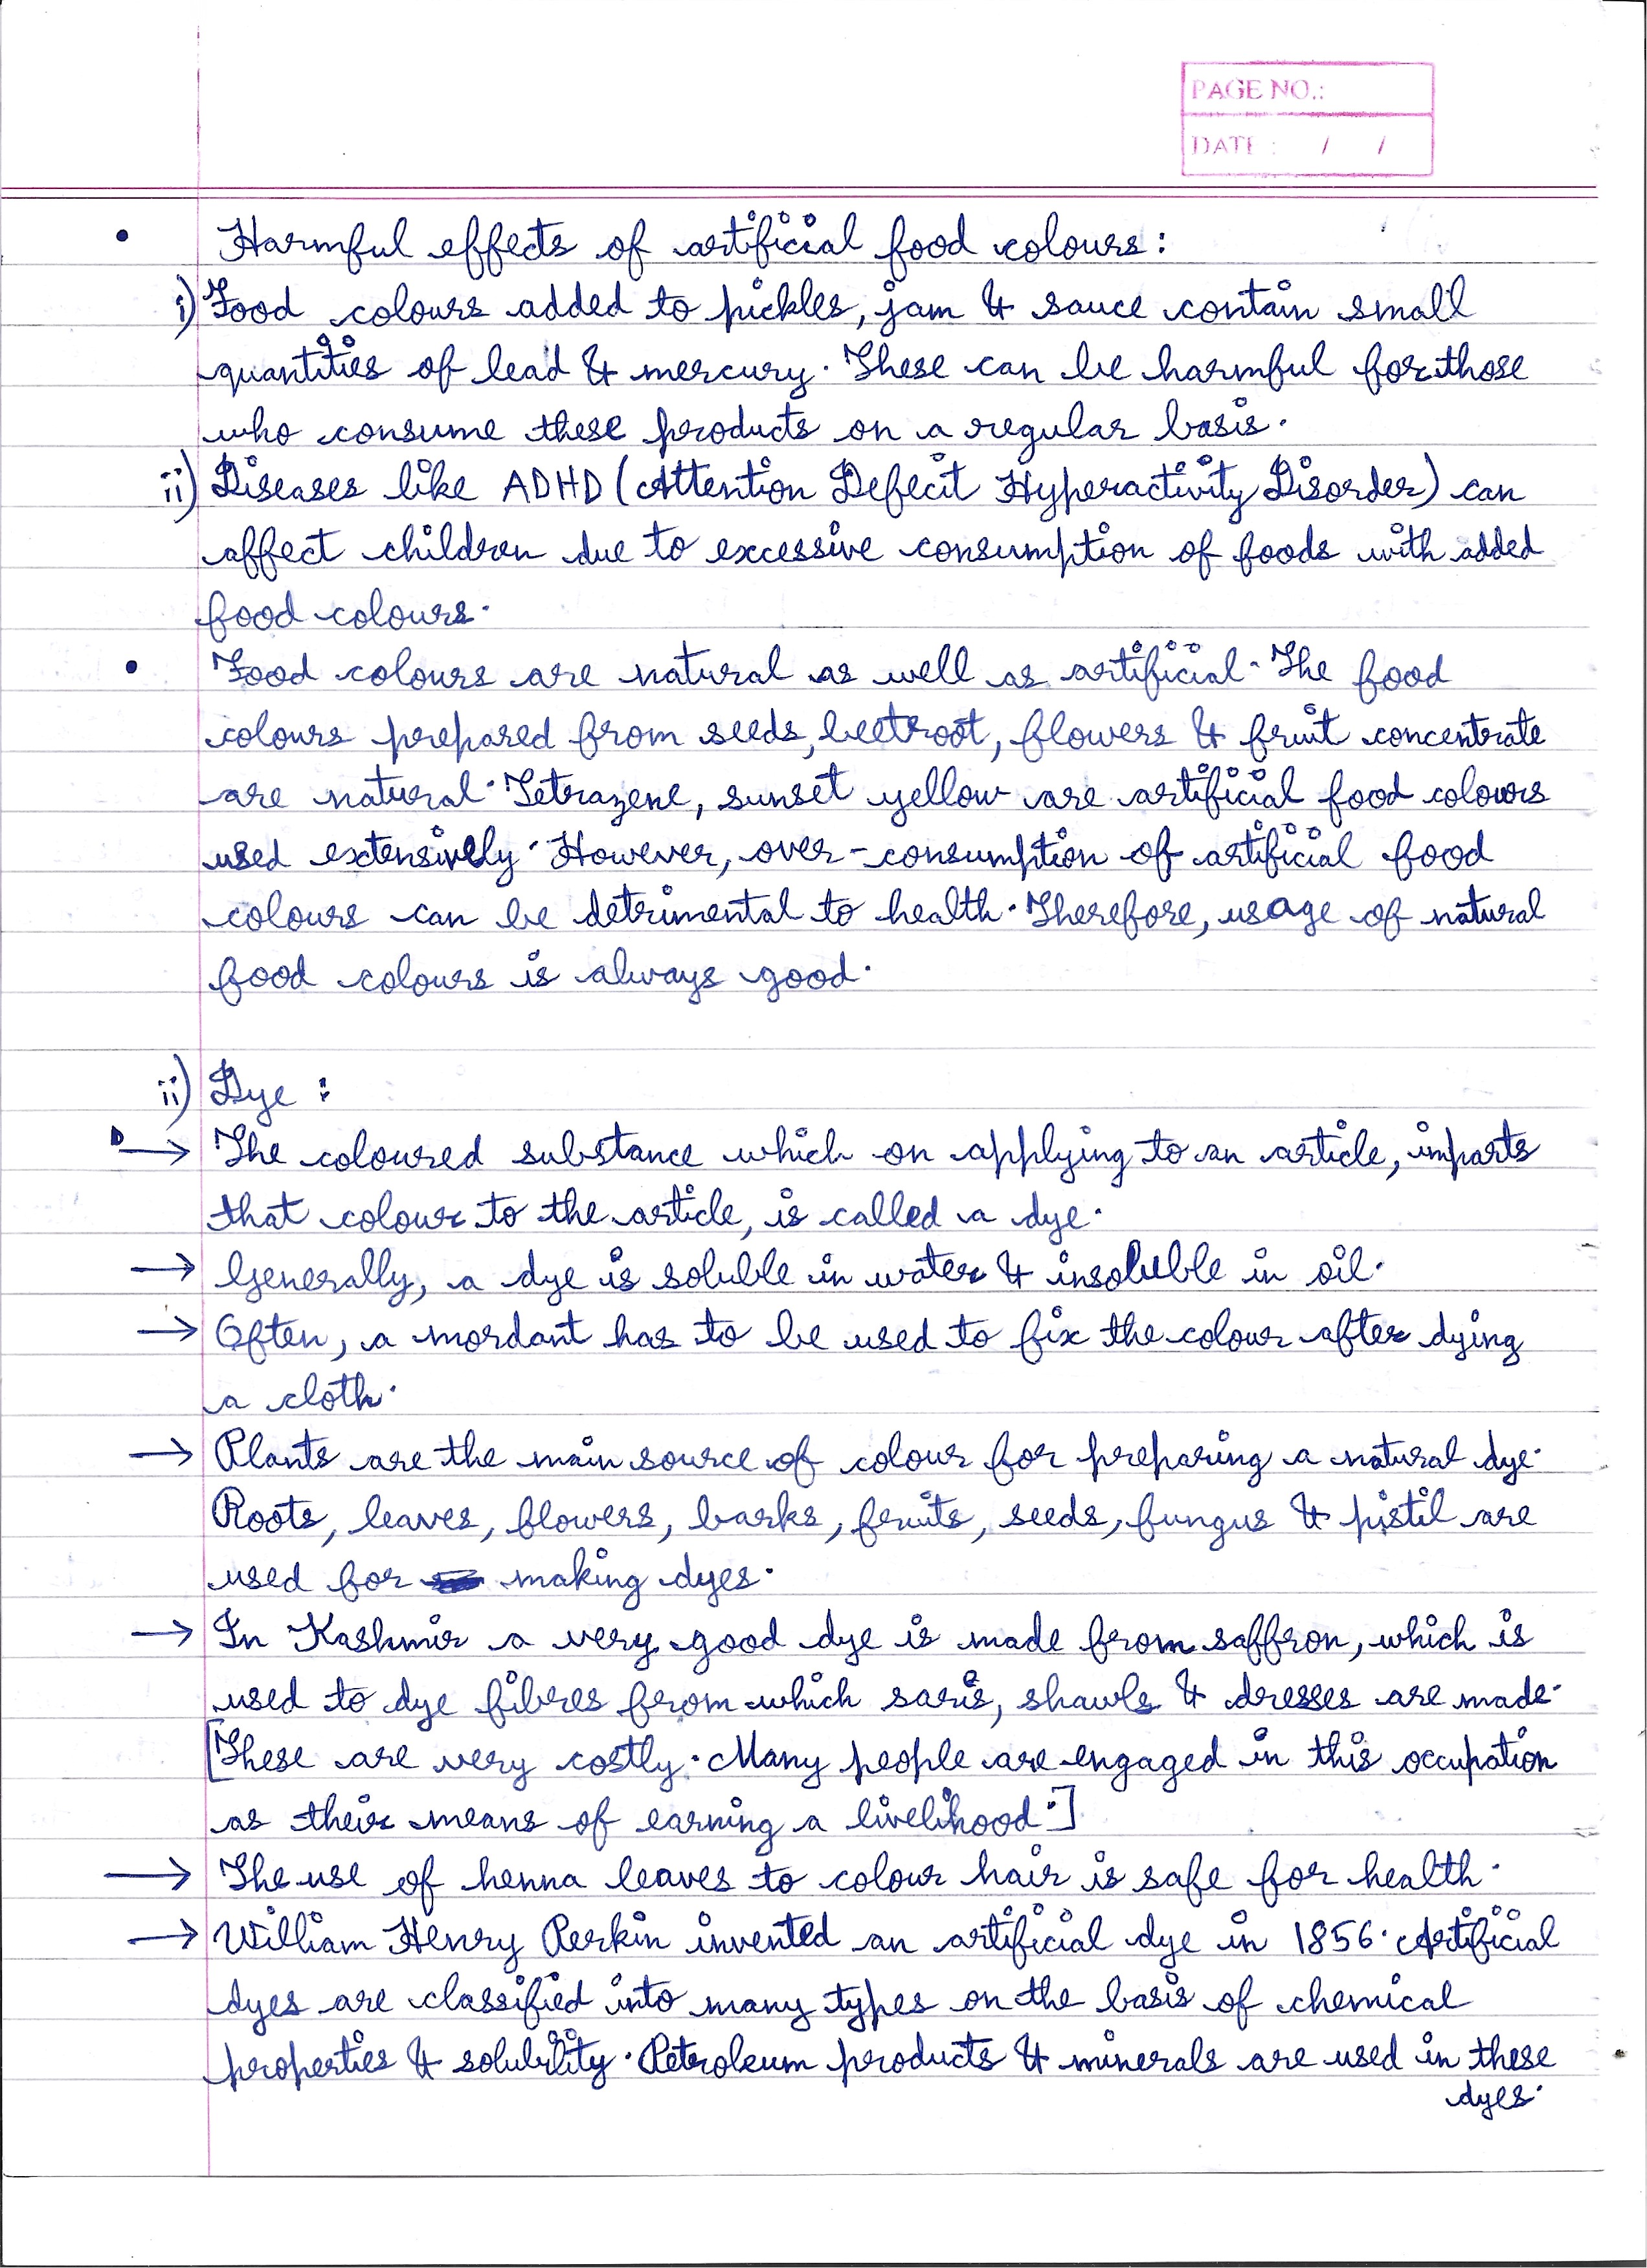 PAGE NO.:
DATE : / /
• Harmful effects of artificial food colours:
i) Food colours added to pickles, jam & sauce contain small
quantities of lead & mercury. These can be harmful for those
who consume these products on a regular basis.
ii) Diseases like ADHD (Attention Defecit Hyperactivity Disorder) can
affect children due to excessive consumption of foods with added
food colours.
• Food colours are natural as well as artificial. The food
colours prepared from seeds, beetroot, flowers & fruit concentrate
are natural. Tetrazene, sunset yellow are artificial food colours
used extensively. However, over-consumption of artificial food
colours can be detrimental to health. Therefore, usage of natural
food colours is always good.
ii) Dye :
→ The coloured substance which on applying to an article, imparts
that colour to the article, is called a dye.
→ Generally, a dye is soluble in water & insoluble in oil.
→ Often, a mordant has to be used to fix the colour after dying
a cloth.
→ Plants are the main source of colour for preparing a natural dye.
Roots, leaves, flowers, barks, fruits, seeds, fungus & pistil are
used for making dyes.
→ In Kashmir a very good dye is made from saffron, which is
used to dye fibres from which saris, shawls & dresses are made.
[These are very costly. Many people are engaged in this occupation
as their means of earning a livelihood.]
→ The use of henna leaves to colour hair is safe for health.
→ William Henry Perkin invented an artificial dye in 1856. Artificial
dyes are classified into many types on the basis of chemical
properties & solubility. Petroleum products & minerals are used in these
dyes.